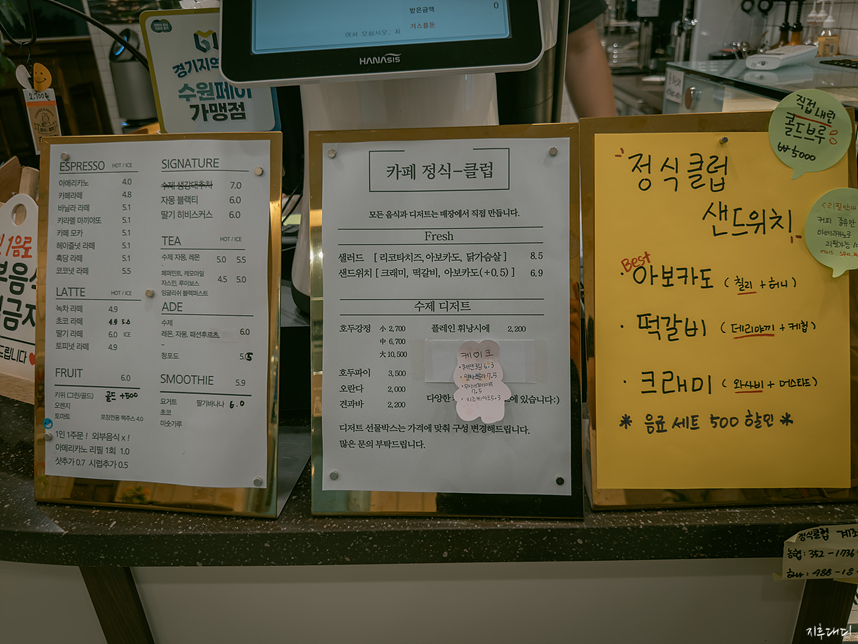 받은금액
0
거스름돈
HANASIS
경기지역
수원페이
가맹점
2,700
ESPRESSO HOT / ICE
아메리카노 4.0
카페라떼 4.8
바닐라 라떼 5.1
카라멜 마끼아또 5.1
카페 모카 5.1
헤이즐넛 라떼 5.1
흑당 라떼 5.1
코코넛 라떼 5.5
LATTE HOT / ICE
녹차 라떼 4.9
초코 라떼 4.9 5.0
딸기 라떼 6.0 ICE
토피넛 라떼 4.9
FRUIT 6.0
키위 (그린/골드) 골드 +500
오렌지
토마토
1인 1주문 ! 외부음식 x !
아메리카노 리필 1회 1.0
샷추가 0.7 시럽추가 0.5
SIGNATURE
수제 생강대추차 7.0
자몽 블랙티 6.0
딸기 히비스커스 6.0
TEA HOT / ICE
수제 자몽, 레몬 5.0 5.5
페퍼민트, 캐모마일
자스민, 루이보스 4.5 5.0
잉글리쉬 블랙퍼스트
ADE
수제
레몬, 자몽, 패션후르츠 6.0
-
청포도
SMOOTHIE 5.9
요거트 딸기바나나 6.0
초코
미숫가루
카페 정식-클럽
모든 음식과 디저트는 매장에서 직접 만듭니다.
Fresh
샐러드 [ 리코타치즈, 아보카도, 닭가슴살 ] 8.5
샌드위치 [ 크래미, 떡갈비, 아보카도(+0.5) ] 6.9
수제 디저트
호두강정 小 2,700 플레인 휘낭시에 2,200
中 6,700
大 10,500
케이크
호두파이 3,500
오란다 2,000
견과바 2,200
다양한
에 있습니다:)
디저트 선물박스는 가격에 맞춰 구성 변경해드립니다.
많은 문의 부탁드립니다.
직접 내린
콜드브루
₩5000
정식클럽
샌드위치
Best
아보카도 ( 칠리 + 허니 )
· 떡갈비 ( 데리야끼 + 케찹 )
· 크래미 ( 와사비 + 머스타드 )
* 음료 세트 500 할인 *
정식클럽 계좌
농협 : 352-1736
지후대디